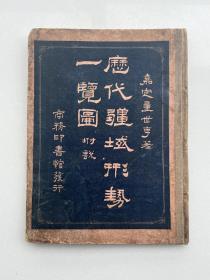 嘉定童世亨著
歷代疆域形勢
一覽圖附說
商務印書館發行